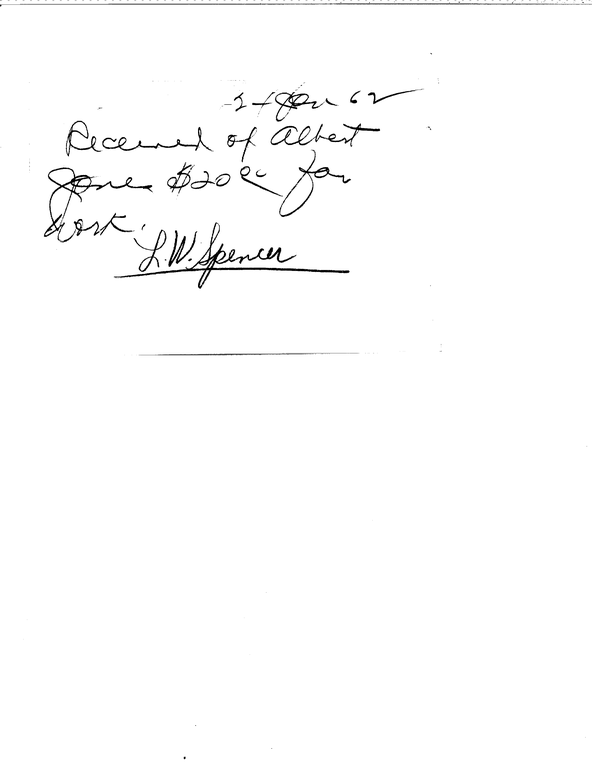 Jan 62
Received of Albert
Jones $20 00 for
work.
L.W. Spencer